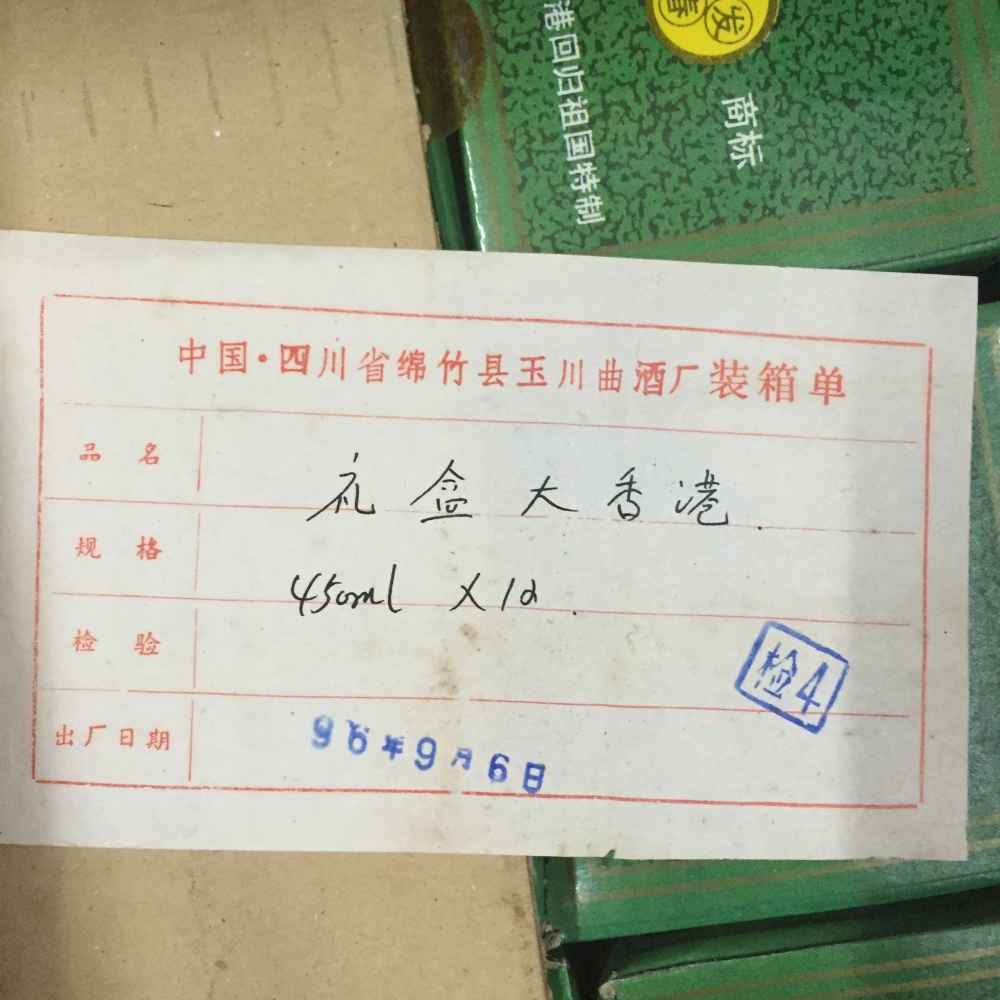 发
春
商标
港回归祖国特制
中国·四川省绵竹县玉川曲酒厂装箱单
品名 礼盒大香港.
规格 450ml X10.
检验 检4
出厂日期 96年9月6日